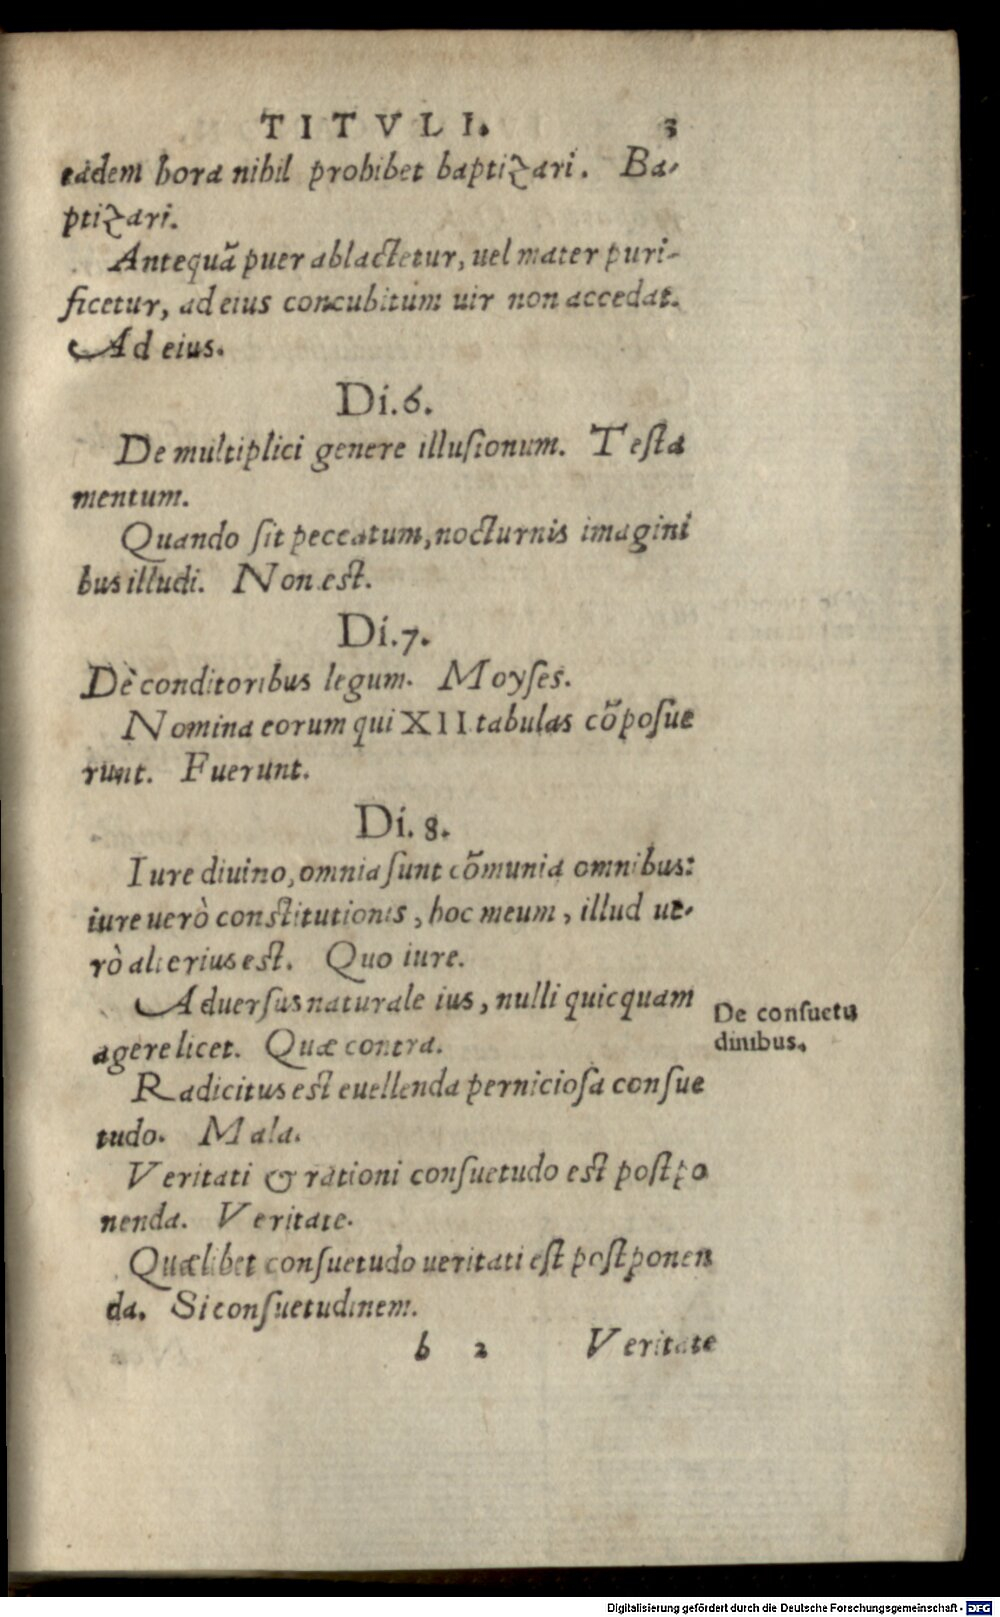 TITVLI. 3
eadem hora nihil prohibet baptizari. Ba-
ptizari.
Antequã puer ablactetur, uel mater puri-
ficetur, ad eius concubitum uir non accedat.
Ad eius.
Di.6.
De multiplici genere illuſionum. Teſta
mentum.
Quando ſit peccatum, nocturnis imagini
bus illudi. Non eſt.
Di.7.
Dè conditoribus legum. Moyſes.
Nomina eorum qui XII tabulas cõpoſue
runt. Fuerunt.
Di. 8.
Iure diuino, omnia ſunt cõmunia omnibus:
iure uerò conſtitutionis, hoc meum, illud ue-
rò alterius eſt. Quo iure.
Aduerſus naturale ius, nulli quicquam
agere licet. Quæ contra.
De conſuetu
dinibus.
Radicitus eſt euellenda pernicioſa conſue
tudo. Mala.
Veritati & rationi conſuetudo eſt poſtpo
nenda. Veritate.
Quælibet conſuetudo ueritati eſt poſtponen
da. Si conſuetudinem.
b 2 Veritate
Digitalisierung gefördert durch die Deutsche Forschungsgemeinschaft - DFG